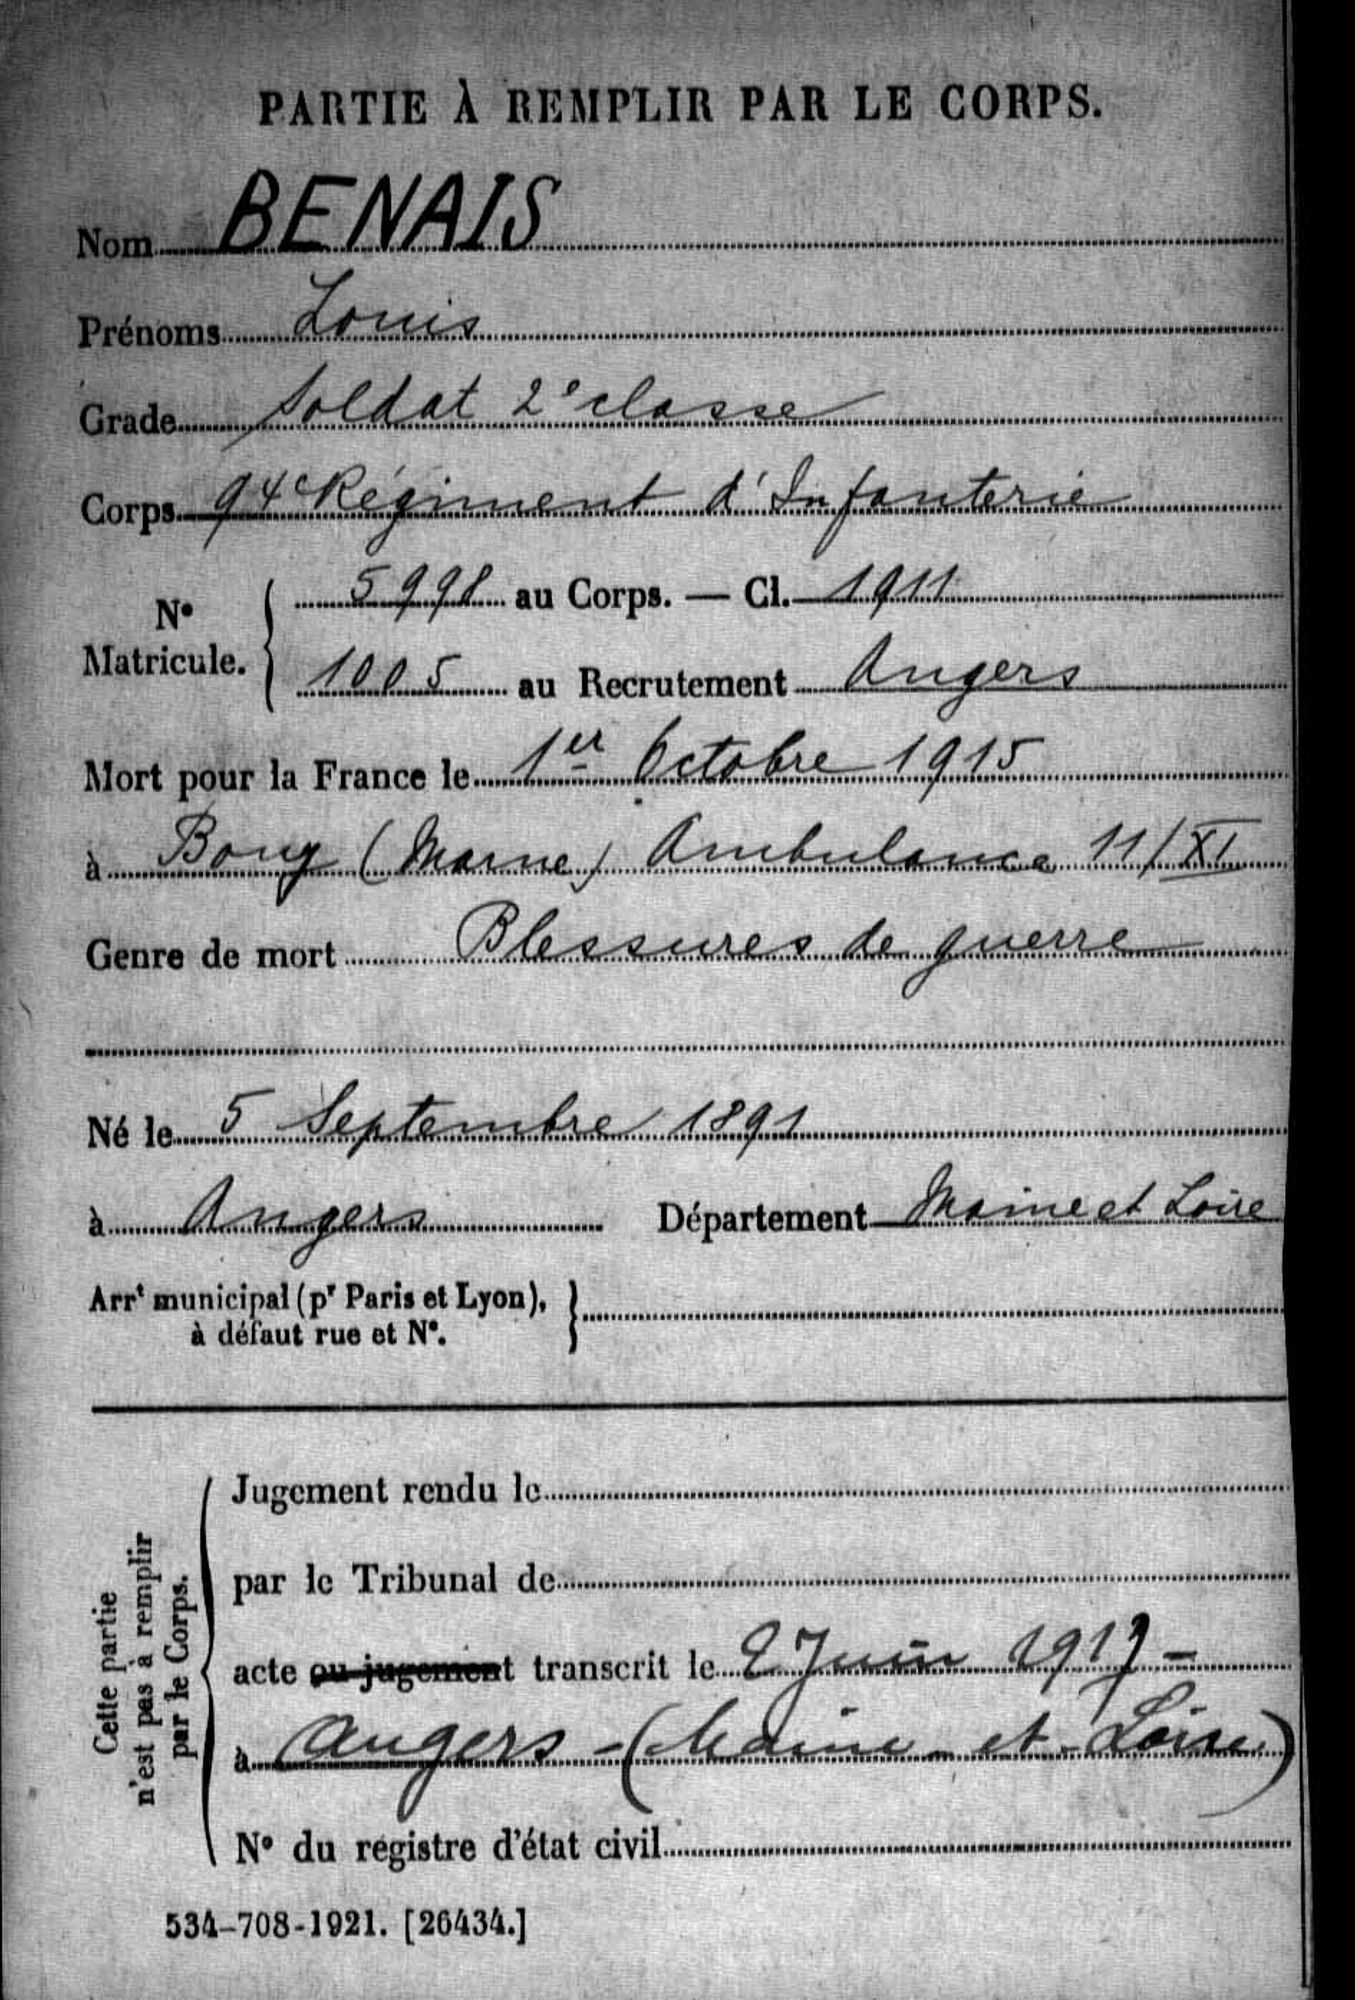 PARTIE À REMPLIR PAR LE CORPS.
Nom BENAIS
Prénoms Louis
Grade Soldat 2e classe
Corps 94e Régiment d'Infanterie
N° Matricule. 5998 au Corps. — Cl. 1911
1005 au Recrutement Angers
Mort pour la France le 1er Octobre 1915
à Bouy (Marne) Ambulance 11/XI
Genre de mort Blessures de guerre
Né le 5 Septembre 1891
à Angers Département Maine et Loire
Arrt municipal (pr Paris et Lyon),
à défaut rue et N°.
Cette partie
n'est pas à remplir
par le Corps.
Jugement rendu le
par le Tribunal de
acte ou jugement transcrit le 2 Juin 1917 -
à Angers - (Maine - et - Loire)
N° du registre d'état civil
534-708-1921. [26434.]